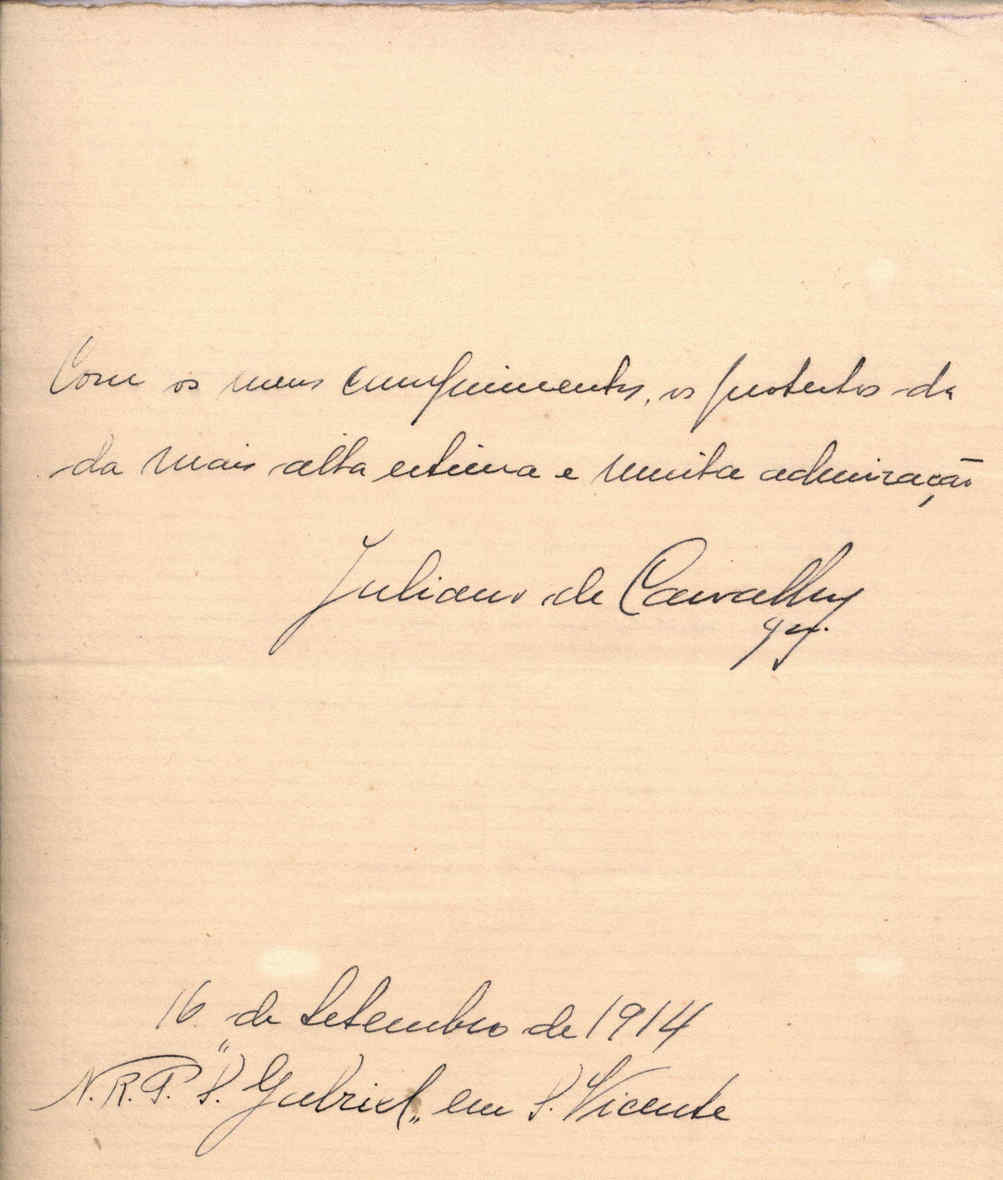 Com os meus cumprimentos, os protestos da
da mais alta estima e muita admiração
Juliano de Carvalho
16 de Setembro de 1914
N.R.P. "S. Gabriel„ em S. Vicente